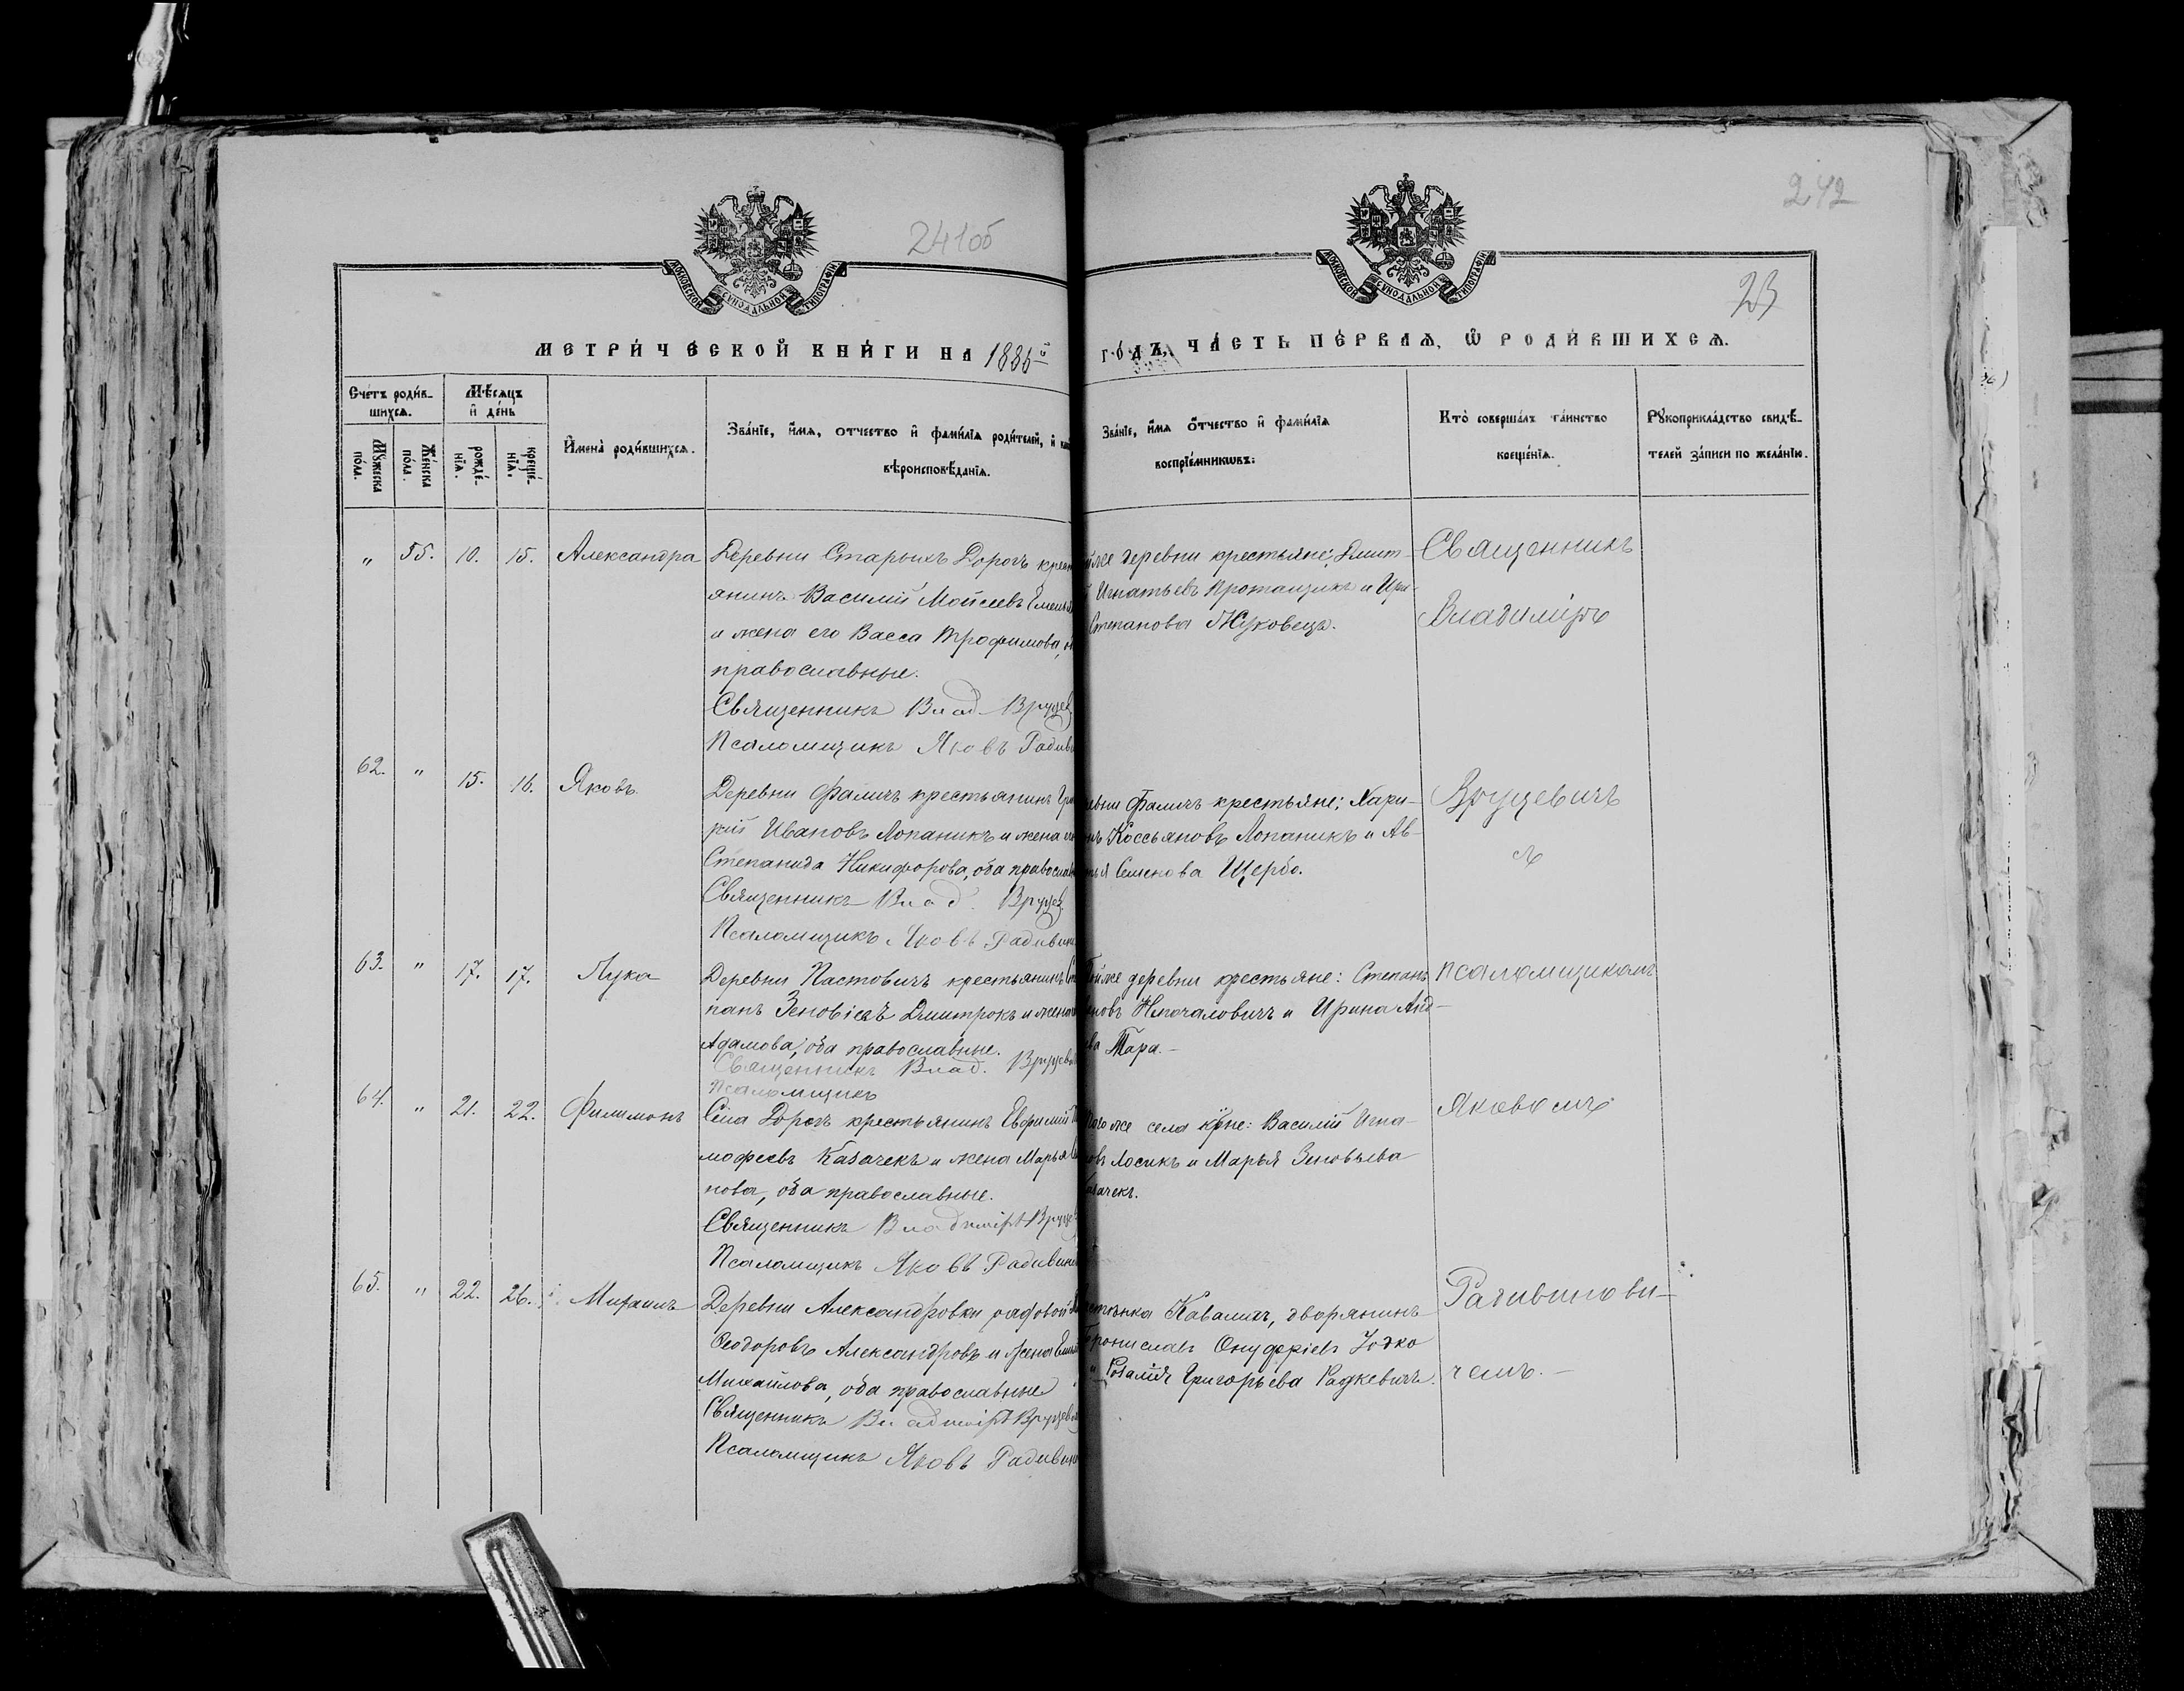 241об
242
23
МОСКОВСКОЙ СУНОДАЛЬНОЙ ТИПОГРАФІИ
МОСКОВСКОЙ СУНОДАЛЬНОЙ ТИПОГРАФІИ
МЕТРИ́ЧЕСКОЙ КНИ́ГИ НА 1886й
ГО́ДЪ, ЧА́СТЬ ПЕ́РВАѦ, Ѿ РОДИ́ВШИХСѦ.
Счетъ роди́в-
шихсѧ.
Мꙋ́жеска по́ла.
Же́нска по́ла.
Мѣ́сѧцъ
и҆ де́нь
рожде́-
нїѧ.
креще́-
нїѧ.
И҆мена̀ роди́вшихсѧ.
Зва́нїе, и҆́мѧ, о҆́тчество и҆ фами́лїѧ роди́телей, и҆
вѣроисповѣ́данїѧ.
Зва́нїе, и҆́мѧ о҆́тчество и҆ фами́лїѧ
воспрїе́мникѡвъ.
Кто̀ соверша́лъ та́инство
креще́нїѧ.
Рꙋкоприкла́дство свидѣ́-
телей за́писи по жела́нїю.
" 55. 10. 15. Александра
Деревни Старыхъ Дорогъ крест
янинъ Василій Моисеевъ Емелья
и жена его Васса Трофимова, о
православные.
Священникъ Влад. Вруцев
Псаломщикъ Яковъ Радиви
йже деревни крестьяне: Дмит-
Игнатьевъ Протащикъ и Ири-
Степанова Жуковецъ.
62. " 15. 16. Яковъ
Деревни Фаличъ крестьянинъ Гри
рій Ивановъ Лопаникъ и жена
Степанида Никифорова, оба православ
Священникъ Влад. Вруцев
Псаломщикъ Яковъ Радивин
евни Фаличъ крестьяне: Хари-
нъ Коссьяновъ Лопаникъ и Ав-
тья Семенова Щербо.
63. " 17. 17. Лука
Деревни Пастовичъ крестьянинъ Сте
панъ Зеновіевъ Дмитрокъ и жена
Адамова, оба православные.
Священникъ Влад. Вруцевич
Псаломщикъ
Тойже деревни крестьяне: Степанъ
новъ Непочаловичъ и Ирина Анд-
ва Тара.-
64. " 21. 22. Филимонъ
Села Дорогъ крестьянинъ Евфимій Ти
мофеевъ Казачекъ и жена Марья
нова, оба православные.
Священникъ Владиміръ Вруце
Псаломщикъ Яковъ Радивин
Тогоже села кр̃не: Василій Игна-
овъ Лосикъ и Марья Зиновьева
азачекъ.
65. " 22. 26. Михаилъ
Деревни Александровки рядовой
Ѳеодоровъ Александровъ и жена
Михайлова, оба православные
Священникъ Владиміръ Вруцев
Псаломщикъ Яковъ Радивин
Ковалич, дворянинъ
Брониславъ Онуфріевъ Іодко
и Розалія Григорьева Радкевичъ.
Священникъ
Владиміръ
Вруцевичъ
съ
псаломщикомъ
Яковомъ
Радивинови-
чемъ.-